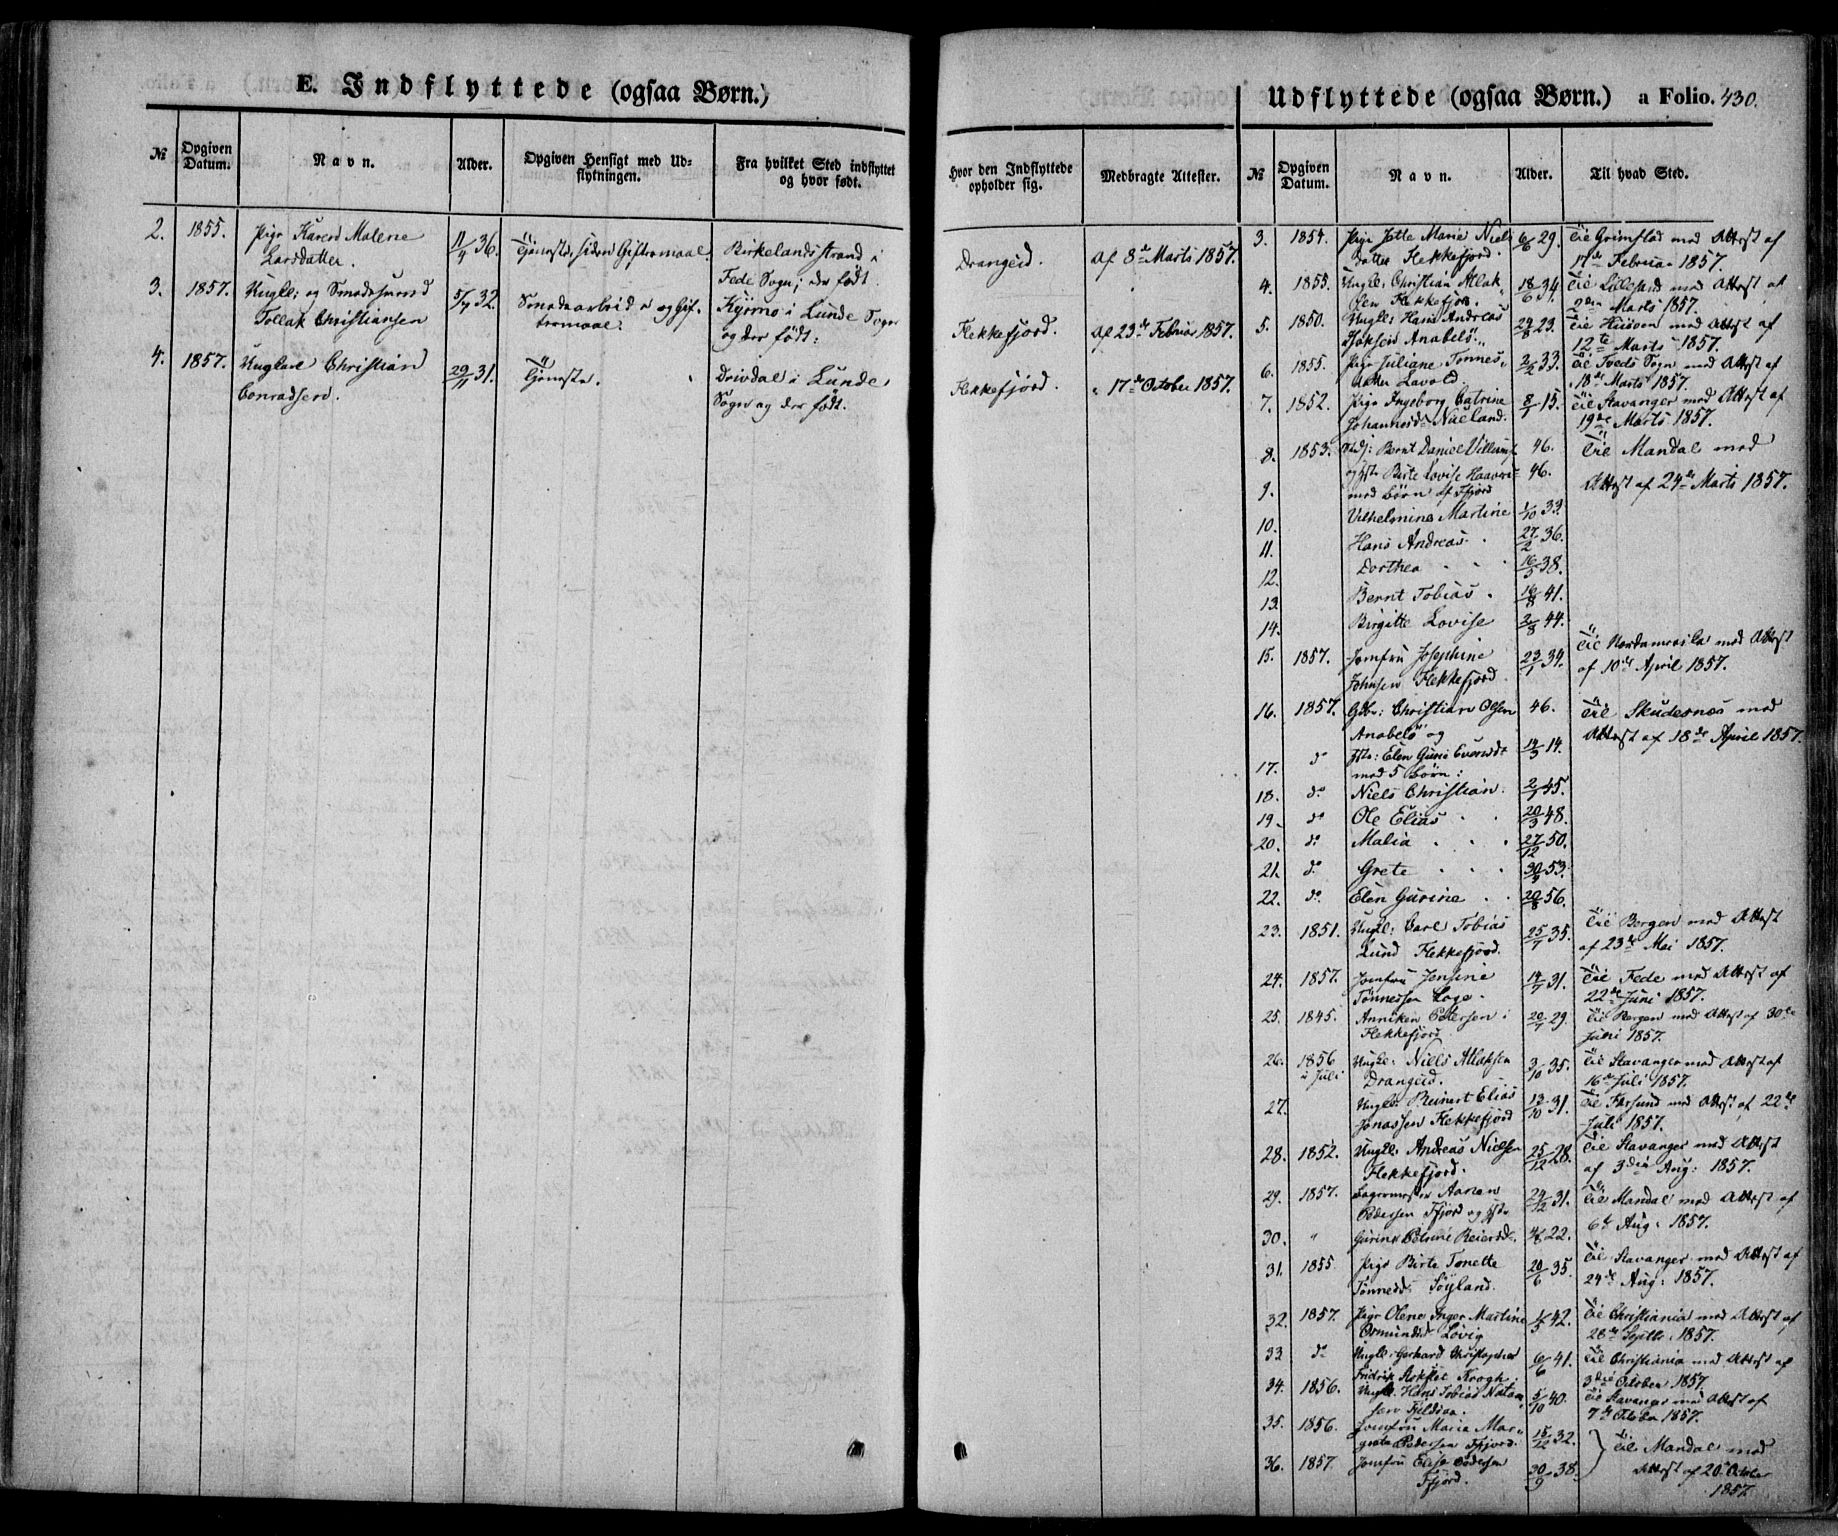 E. Indflyttede (ogsaa Børn.)
№
Opgiven Datum.
Navn.
Alder.
Opgiven Hensigt med Udflytningen.
Fra hvilket Sted indflyttet og hvor født.
2. 1855. Pige Karen Malene 11/4 36. Tjeneste, siden Giftermaal. Birkelandsstrand i
Larsdatter. Fede Sogn; der født.
3. 1857. Ungk: og Smedesvend 5/9 32. Smedearbeide og Gif- Kjørmo i Lunde Sogn
Tollak Christiansen termaal. og der født.
4. 1857. Ungkarl Christian 29/11 31. Tjeneste. Drivdal i Lunde
Conradsen. Sogn og der født.
Hvor den Indflyttede opholder sig.
Medbragte Attester.
Drangeid. Af 8de Marts 1857.
Flekkefjord. Af 23de Februar 1857.
Flekkefjord. " 17de October 1857.
Udflyttede (ogsaa Børn.) a Folio. 430.
№
Opgiven Datum.
Navn.
Alder.
Til hvad Sted.
3. 1854. Pige Jotte Marie Niels 6/6 29. Til Grimstad med Attest af
datter Flekkefjord. 17de Februar 1857.
4. 1855. Ungk: Christian Atlak 18/6 34. Til Lillesand med Attest af
Olsen Flekkefjord. Marts 1857.
5. 1850. Ungk: Hans Andreas 24/8 23. Til med Attest af
Anabelø. 12te Marts 1857.
6. 1855. Pige Juliane Tønnes- 2/2 33. Til Tveds Sogn med Attest af
datter Lavold 18de Marts 1857.
7. 1852. Pige Ingeborg Catrine 8/1 15. Til Stavanger med Attest af
Johannesd: Næland. 19de Marts 1857.
8. 1853. Bernt Daniel Villums 46. Til Mandal med
9. og Hst: Birte Lovise Haavors- 46. Attest af 24de Marts 1857.
med Børn af Ffjord
10. Vilhelmine Martine 1/10 33.
11. Hans Andreas. 27/2 36.
12. Dorthea 16/5 38.
13. Bernt Tobias. 16/8 41.
14. Birgitte Lovise 2/8 44.
15. 1857. Jomfru Josephine 23/1 34. Til Nordamerika med Attest
Johnsen Flekkefjord. af 10de April 1857.
16. 1857. Gbr: Christian Olsen 46. Til Skudesnæs med
Anabelø og Attest af 18de April 1857.
17. do Hst: Elen Guri Evertsdt 14/3 14.
med 5 Børn:
18. do Niels Christian. 2/1 45.
19. do Ole Elias 20/3 48.
20. do Malia 27/12 50.
21. do Grete 30/9 53.
22. do Elen Gurine 20/8 56.
23. 1851. Ungk: Carl Tobias 25/7 35. Til Bergen med Attest
Lund Flekkefjord. af 23de Mai 1857.
24. 1857. Jomfru Jensine 14/7 31. Til Fede med Attest af
Tønnessen Loge. 22de Juni 1857.
25. 1845. Anniken Pedersen i 20/1 29. Til Bergen med Attest af 30te
Flekkefjord Juni 1857.
26. 1856 Ungk: Niels Atlaksen 3/10 35. Til Stavanger med Attest af
Juli Drangeid. 16de Juli 1857.
27. Ungk: Reinert Elias 13/10 31. Til Farsund med Attest af 22de
Jonassen Flekkefjord Juli 1857.
28. 1852. Ungk: Andreas Nielsen 25/12 28. Til Stavanger med Attest
Flekkefjord. af 3die Aug: 1857.
29. 1857. Aanen 24/12 31. Til Mandal med Attest af
Pedersen Ffjord og Hst: 6te Aug: 1857.
30. " Gurine Petrine Reiersdt. 4/8 22.
31. 1855. Pige Birte Tonette 20/6 35. Til Stavanger med Attest af
Tønnesd: Søyland. 24de Aug: 1857.
32. 1857. Pige Olene Inger Martine 1/3 42. Til Christiania med Attest af
Osmundsd: Løvig 28de Septbr. 1857.
33. do Ungk: Gerhard Christopher 6/6 41. Til Christiania med Attest af
Fridrik Krogh. 3die October 1857.
34. 1856. Ungk: Hans Tobias Natan- 5/10 40. Til Stavanger med Attest af
sen Fjeldsaa. 7de October 1857.
35. 1856. Jomfru Maria Mar- 15/12 32. Til Mandal med
grete Pedersen Ffjord.
36. 1857. Jomfru Elise Pedersen 30/9 38. Attest af 20de October
Ffjord. 1857.